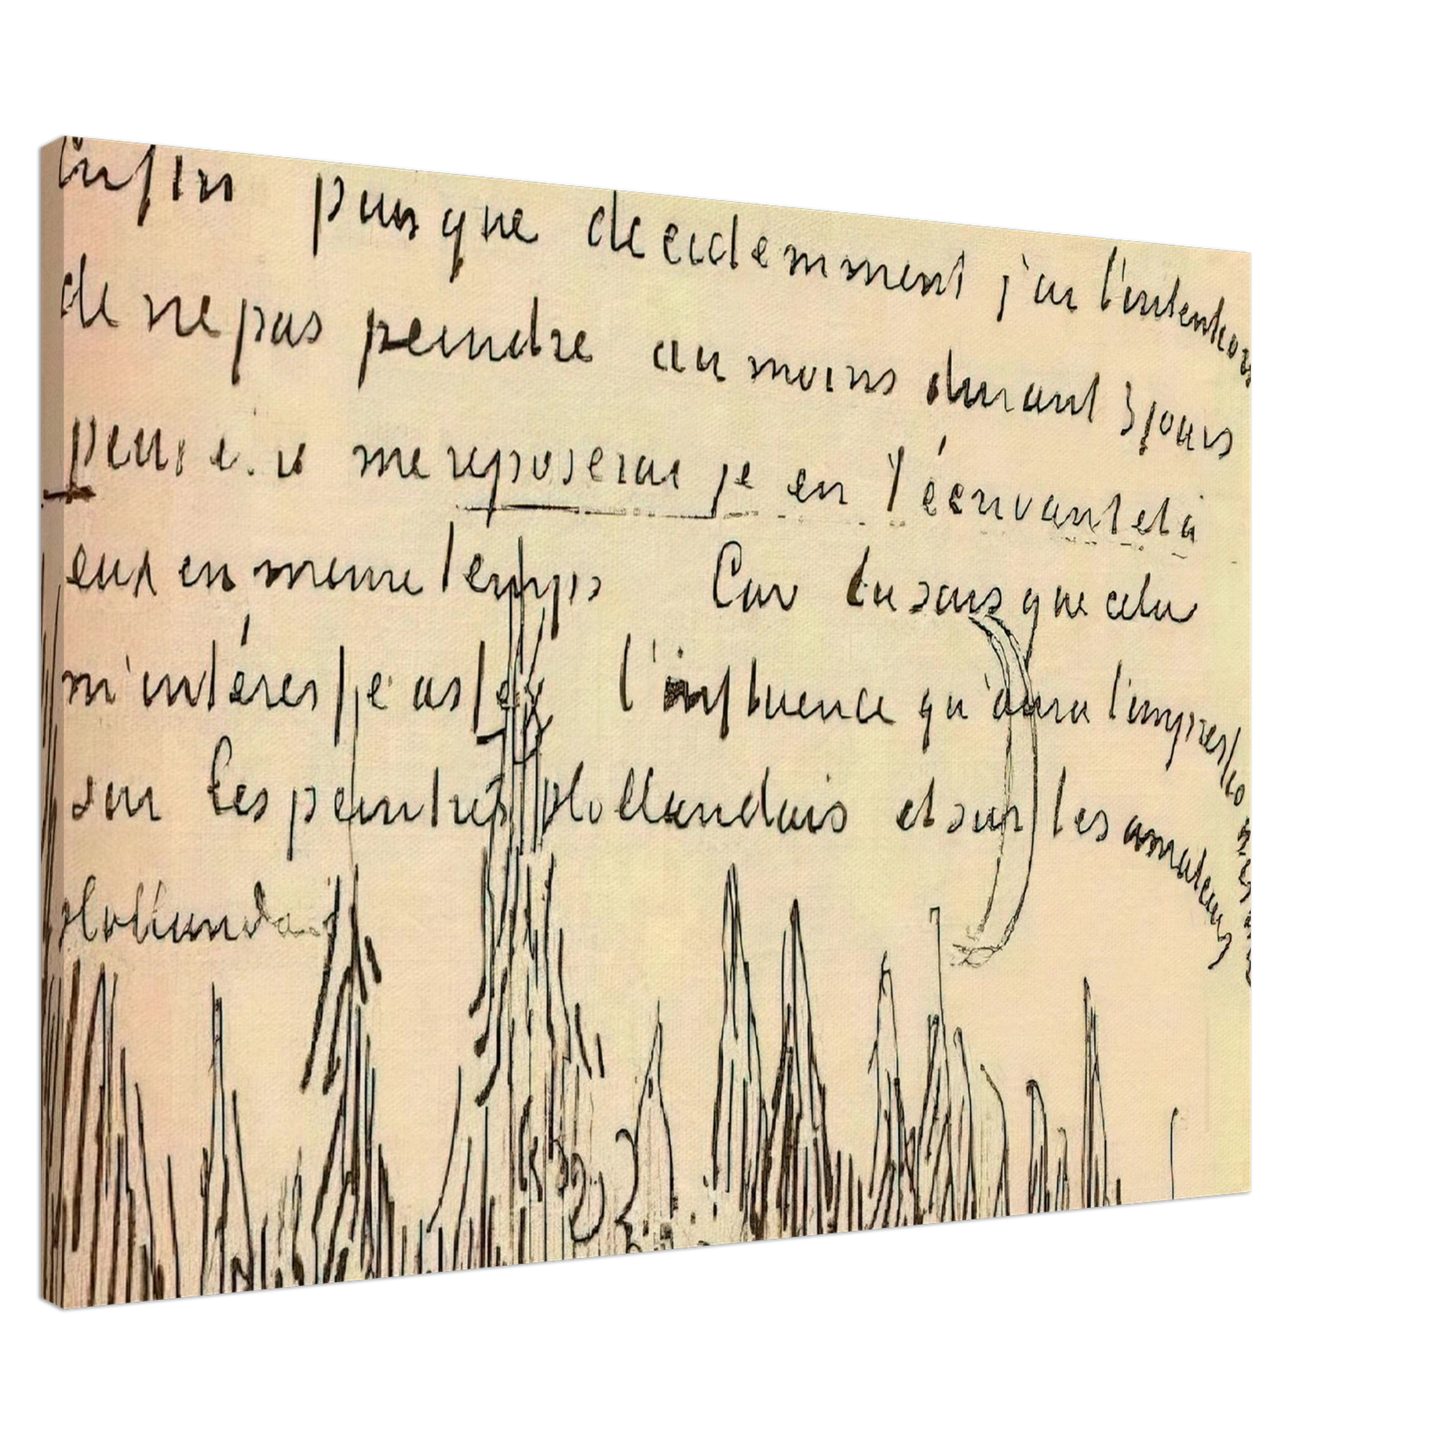 Enfin puisque decidemment j'ai l'intention
de ne pas peindre au moins durant 3 jours
me reposerai je en t'écrivant et à
eux en meme temps Car tu sais que cela
m'intéresse assez l'influence qu'aura l'impression
sur les peintres Hollandais et sur les amateurs
Hollandais